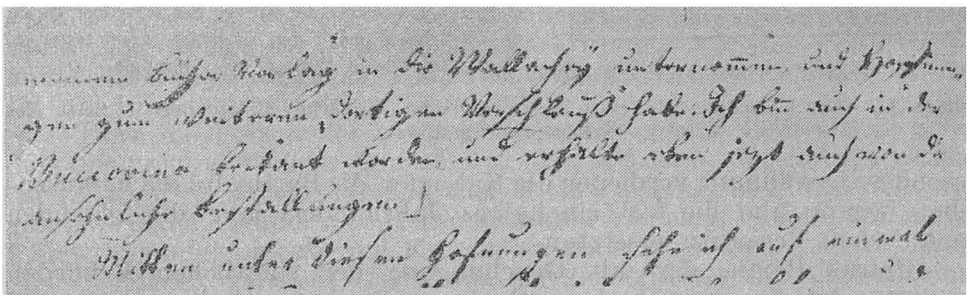 meinem Bücher Verlag in die Wallachey unternommen und Hoffnun-
gen zum weiteren dortigen Verschleuß habe. Ich bin auch in der
Buccovina bekant worden, und erhalte eben jezt auch von da
ansehnliche Bestallungen!
Mitten unter diesen Hofnungen sehe ich auf einmal